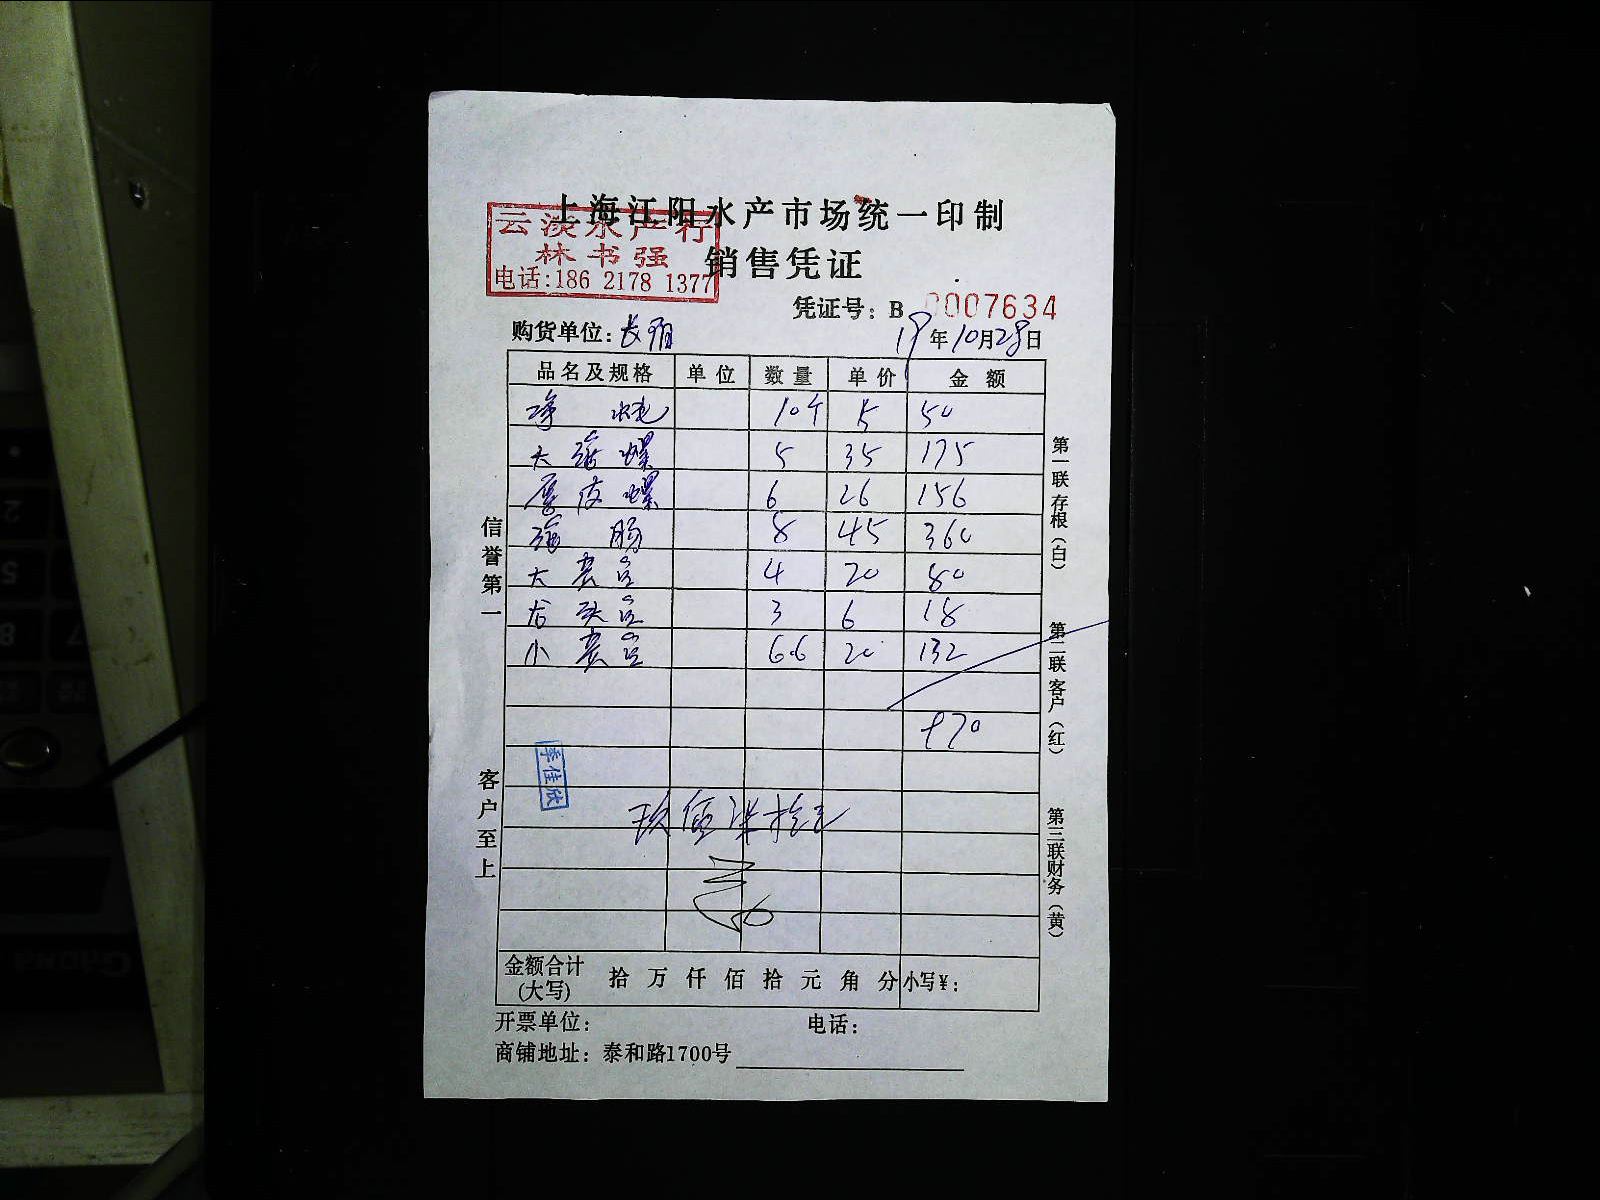 上海江阳水产市场统一印制
云淡水产行
林书强
电话:186 2178 1377
销售凭证
凭证号: B 0007634
购货单位:
19年10月29日
品名及规格 单位 数量 单价 金额
10个 5 50
大海螺 5 35 175
厚皮螺 6 26 156
海肠 8 45 360
大 4 20 80
龙头 3 6 18
小 6.6 20 132
970
季佳欣
玖佰柒拾元
金额合计(大写) 拾 万 仟 佰 拾 元 角 分 小写¥:
开票单位: 电话:
商铺地址: 泰和路1700号
信誉第一
客户至上
第一联 存根(白)
第二联 客户(红)
第三联财务(黄)